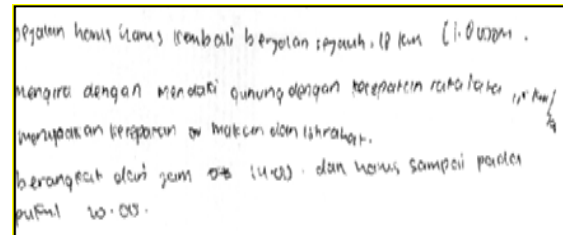 pejalan harus harus kembali berjalan sejauh. 18 km (1.8000m.
mengira dengan mendaki gunung dengan kecepatan rata lata 1,5 km/
merupakan kecepatan makan dan istirahat.
berangkat dari jam 04.00. dan harus sampai pada
pukul 20.00.